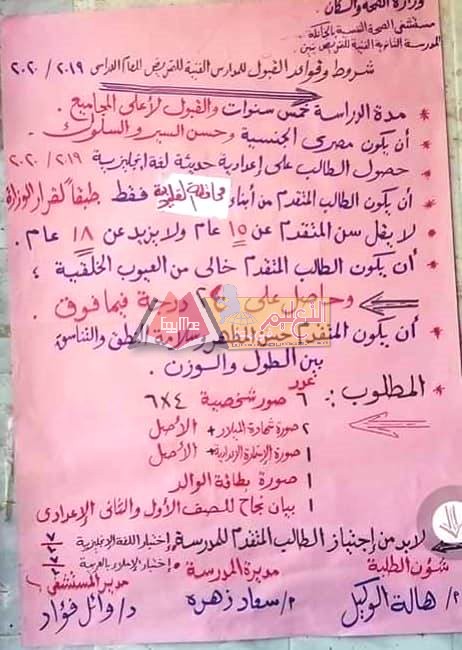 وزارة الصحة والسكان
مستشفى الصحة النفسية بالخانكة
المدرسة الثانوية الفنية للتمريض بنين
شروط وقواعد القبول للمدارس الفنية للتمريض للعام الدراسى ٢٠١٩ / ٢٠٢٠
* مدة الدراسة خمس سنوات والقبول لأعلى المجاميع .
* أن يكون مصرى الجنسية وحسن السير والسلوك .
* حصول الطالب على إعدادية حديثة لغة إنجليزية ٢٠١٩ / ٢٠٢٠
* أن يكون الطالب المتقدم من أبناء محافظة القليوبية فقط طبقاً لقرار الوزارة
* لا يقل سن المتقدم عن ١٥ عام ولا يزيد عن ١٨ عام .
* أن يكون الطالب المتقدم خالى من العيوب الخلقية
وحاصل على درجة فيما فوق
* أن يكون المتقدم حسن المظهر سلامة النطق والتناسق
بين الطول والوزن .
* المطلوب : عدد ٦ صور شخصية ٤×٦
٢ صورة شهادة الميلاد + الأصل
١ صورة الإستمارة الإعدادية + الأصل
١ صورة بطاقة الوالد
١ بيان نجاح للصف الأول والثانى الإعدادى
لابد من إجتياز الطالب المتقدم للمدرسة * إختبار اللغة الإنجليزية
* إختبار
شئون الطلبة مديرة المدرسة مدير المستشفى
م/ هالة الوكيل م/ سعاد زهره د/ وائل فؤاد